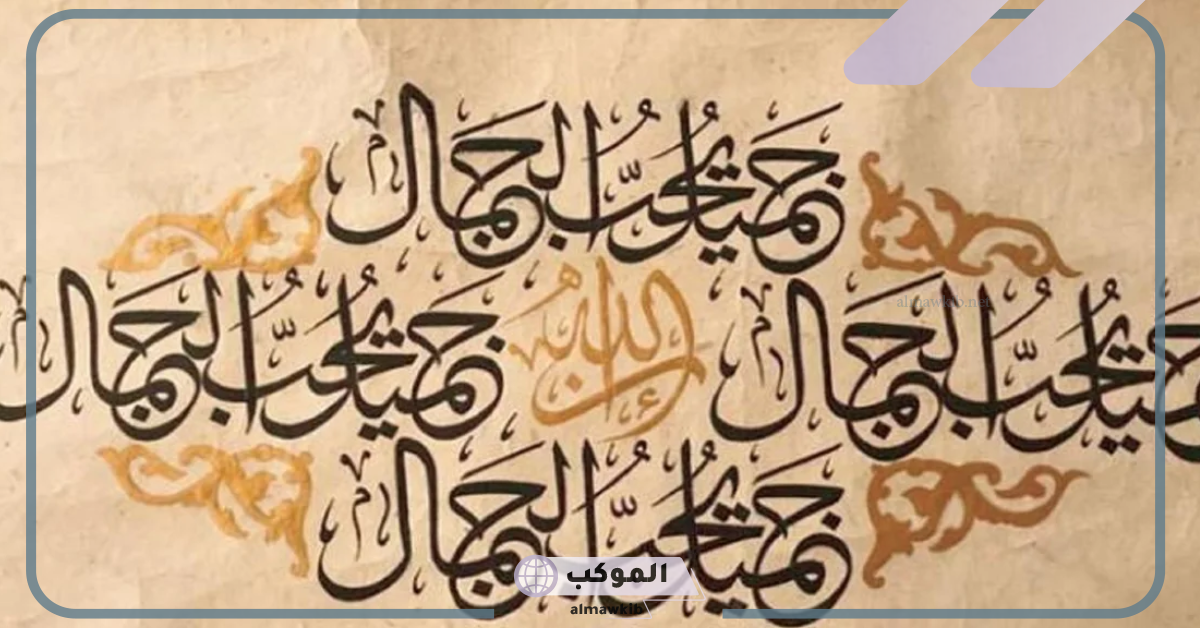 جميل يحب الجمال
إن الله
جميل يحب الجمال
جميل يحب الجمال
جميل يحب الجمال
almawkib.net
الموكب
almawkib